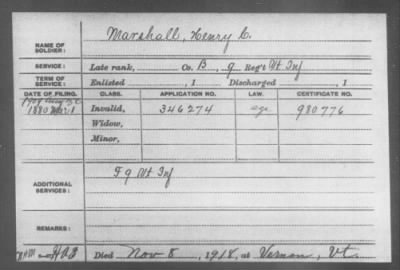 NAME OF SOLDIER: Marshall, Henry C.
SERVICE: Late rank, Co. B, 9 Reg't Vt Inf
TERM OF SERVICE: Enlisted , 1 Discharged , 1
DATE OF FILING. CLASS. APPLICATION NO. LAW. CERTIFICATE NO.
1880 Mar 1 Invalid, 346274 age 980776
Widow,
Minor,
ADDITIONAL SERVICES: F 9 Vt Inf
REMARKS:
Died Nov 8, 1918, at Vernon, Vt.